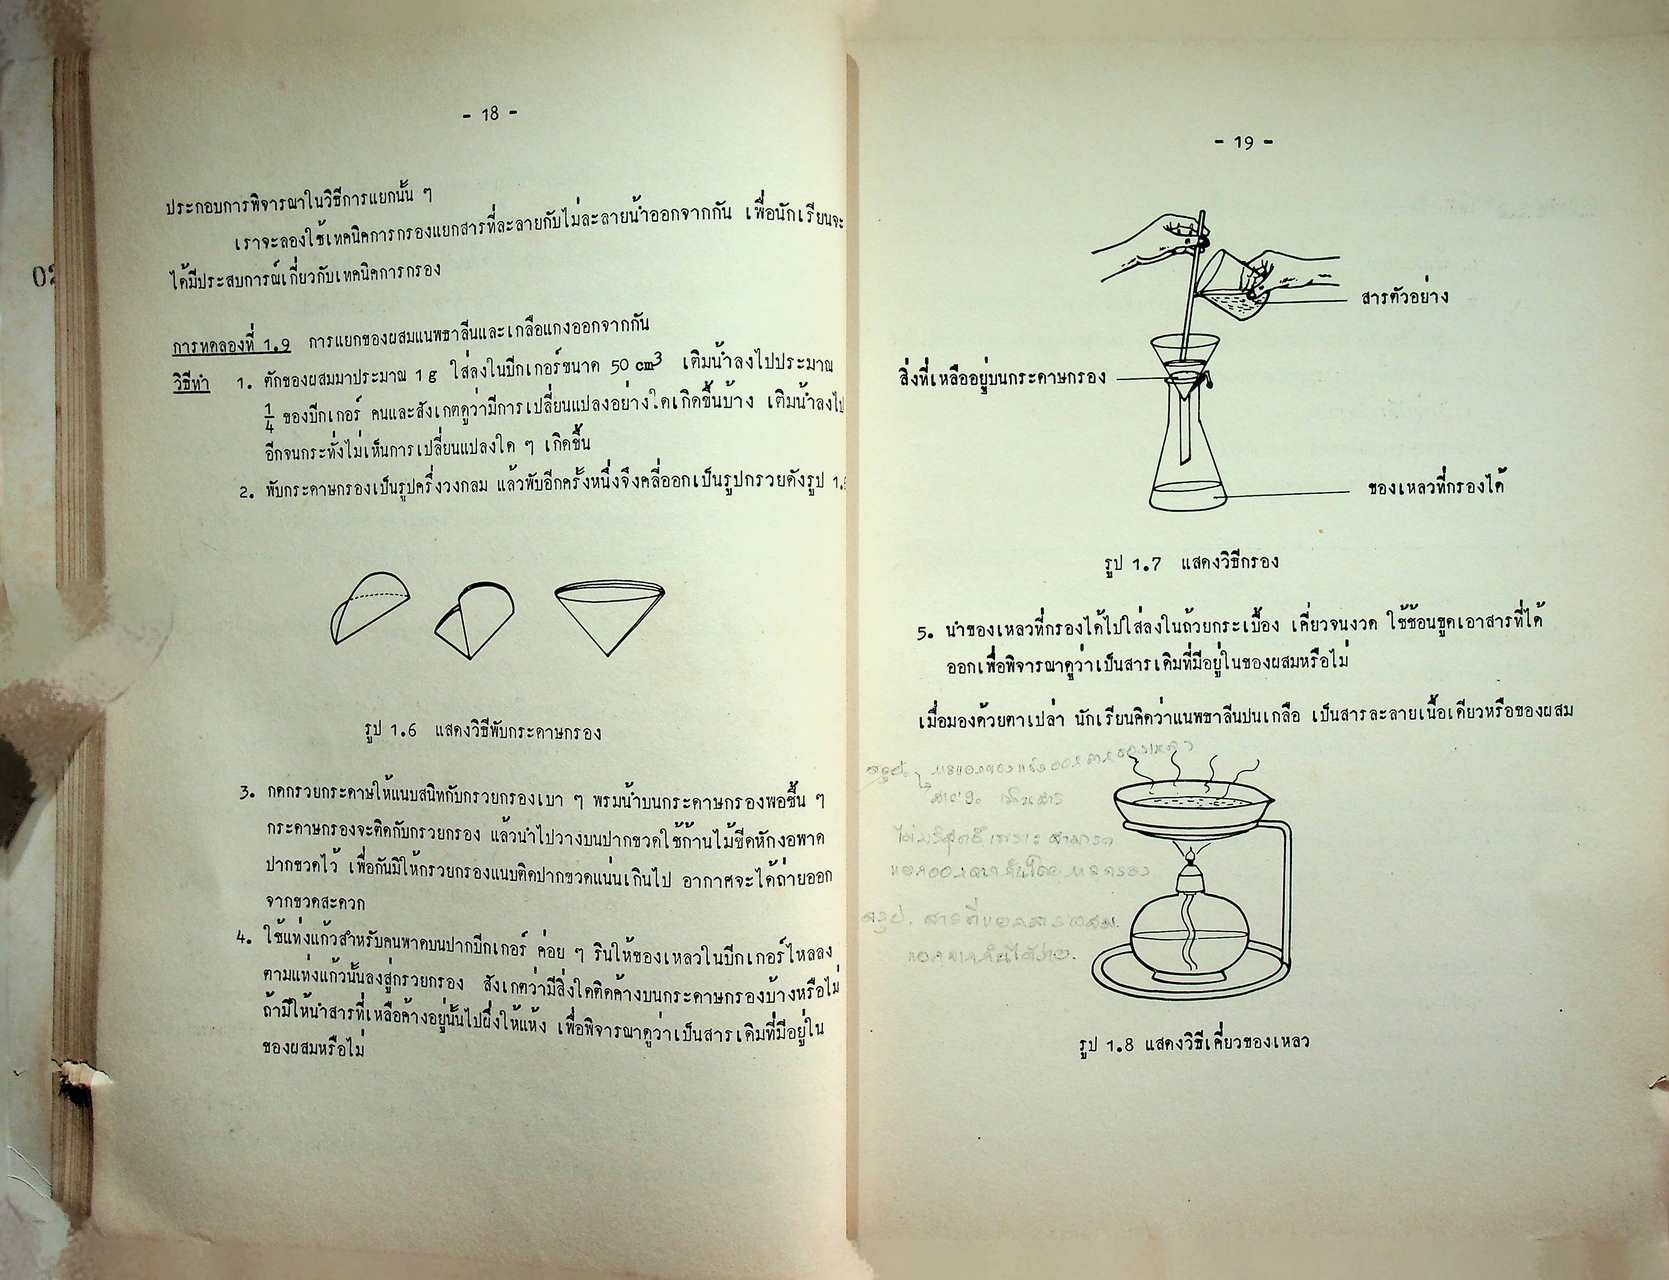 - 18 -
ประกอบการพิจารณาในวิธีการแยกนั้น ๆ
เราจะลองใช้เทคนิคการกรองแยกสารที่ละลายกับไม่ละลายน้ำออกจากกัน เพื่อนักเรียนจะ
ได้มีประสบการณ์เกี่ยวกับเทคนิคการกรอง
การทดลองที่ 1.9 การแยกของผสมแนพธาลีนและเกลือแกงออกจากกัน
วิธีทำ 1. ตักของผสมมาประมาณ 1 g ใส่ลงในบีกเกอร์ขนาด 50 cm³ เติมน้ำลงไปประมาณ
1/4 ของบีกเกอร์ คนและสังเกตดูว่ามีการเปลี่ยนแปลงอย่างใดเกิดขึ้นบ้าง เติมน้ำลงไป
อีกจนกระทั่งไม่เห็นการเปลี่ยนแปลงใด ๆ เกิดขึ้น
2. พับกระดาษกรองเป็นรูปครึ่งวงกลม แล้วพับอีกครั้งหนึ่งจึงคลี่ออกเป็นรูปกรวยดังรูป
รูป 1.6 แสดงวิธีพับกระดาษกรอง
3. กดกรวยกระดาษให้แนบสนิทกับกรวยกรองเบา ๆ พรมน้ำบนกระดาษกรองพอชื้น ๆ
กระดาษกรองจะติดกับกรวยกรอง แล้วนำไปวางบนปากขวดใช้ก้านไม้ขีดหักงอพาด
ปากขวดไว้ เพื่อกันมิให้กรวยกรองแนบติดปากขวดแน่นเกินไป อากาศจะได้ถ่ายออก
จากขวดสะดวก
4. ใช้แท่งแก้วสำหรับคนพาดบนปากบีกเกอร์ ค่อย ๆ รินให้ของเหลวในบีกเกอร์ไหลลง
ตามแท่งแก้วนั้นลงสู่กรวยกรอง สังเกตว่ามีสิ่งใดติดค้างบนกระดาษกรองบ้างหรือไม่
ถ้ามีให้นำสารที่เหลือค้างอยู่นั้นไปผึ่งให้แห้ง เพื่อพิจารณาดูว่าเป็นสารเดิมที่มีอยู่ใน
ของผสมหรือไม่
- 19 -
สารตัวอย่าง
สิ่งที่เหลืออยู่บนกระดาษกรอง
ของเหลวที่กรองได้
รูป 1.7 แสดงวิธีกรอง
5. นำของเหลวที่กรองได้ไปใส่ลงในถ้วยกระเบื้อง เคี่ยวจนงวด ใช้ช้อนขูดเอาสารที่ได้
ออกเพื่อพิจารณาดูว่าเป็นสารเดิมที่มีอยู่ในของผสมหรือไม่
เมื่อมองด้วยตาเปล่า นักเรียนคิดว่าแนพธาลีนปนเกลือ เป็นสารละลายเนื้อเดียวหรือของผสม
รูป 1.8 แสดงวิธีเคี่ยวของเหลว